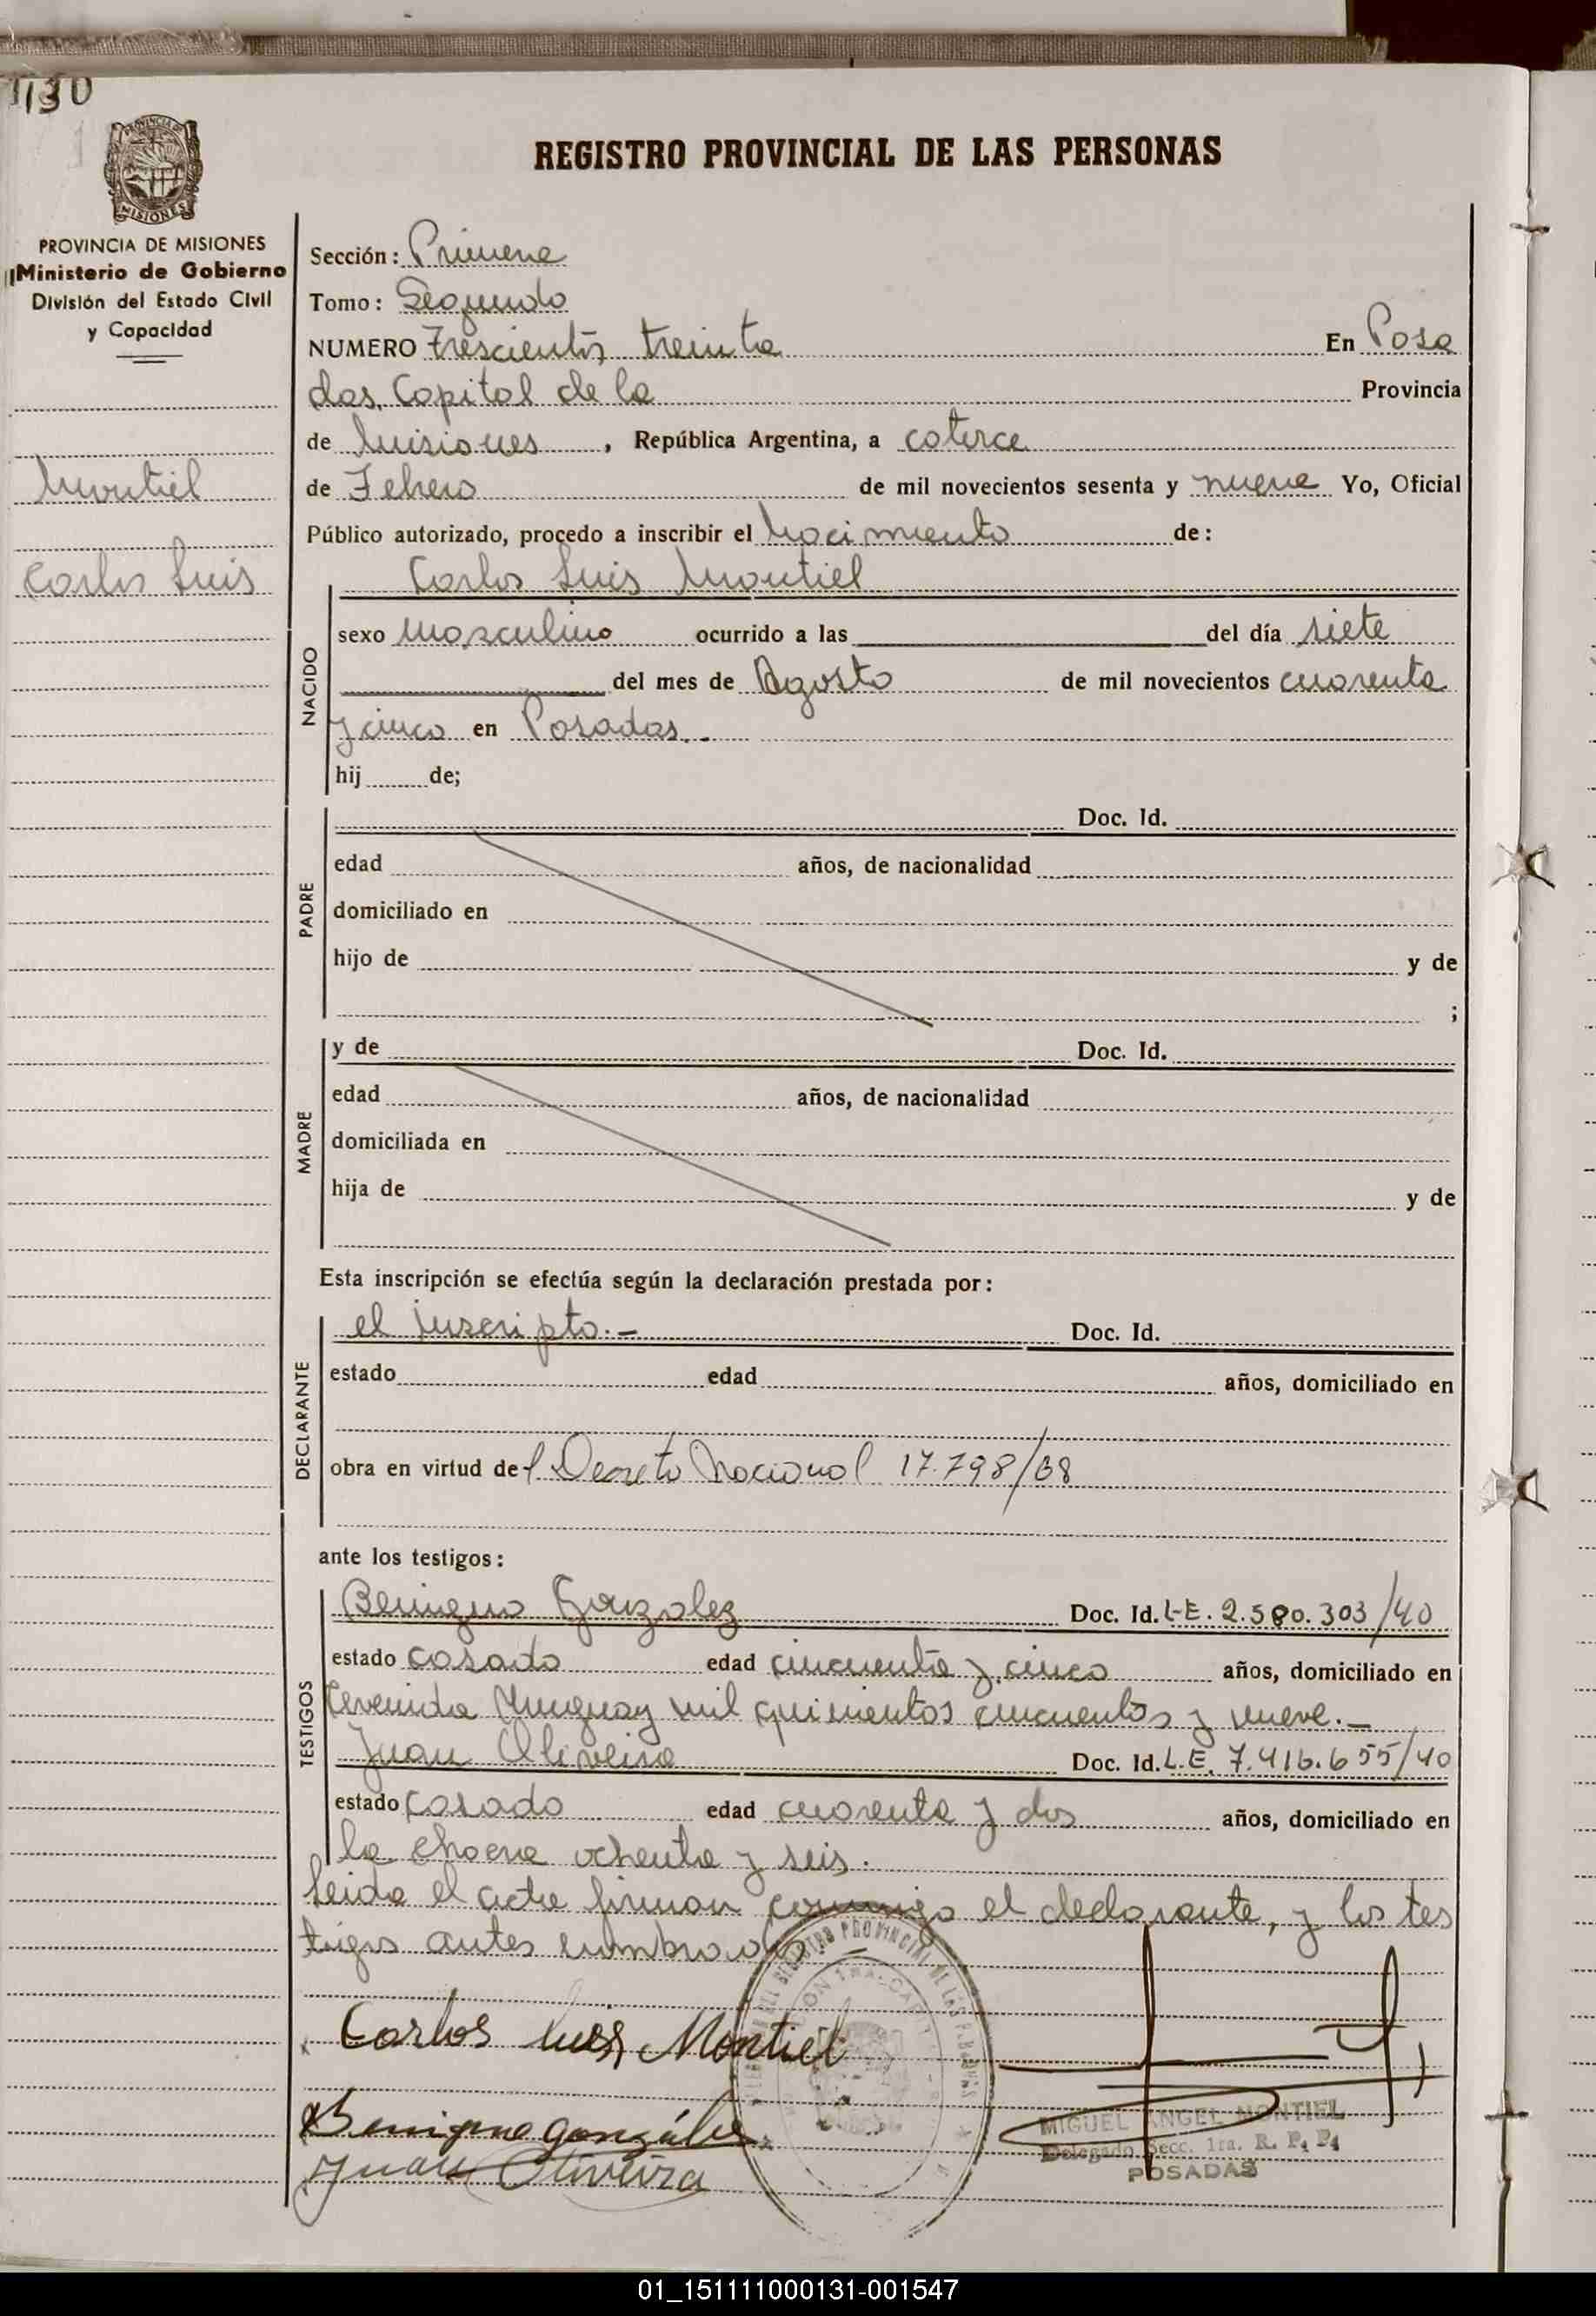 1130
PROVINCIA DE
MISIONES
REGISTRO PROVINCIAL DE LAS PERSONAS
PROVINCIA DE MISIONES
Ministerio de Gobierno
División del Estado Civil
y Capacidad
Montiel
Carlos Luis
Sección: Primera
Tomo: Segundo
NUMERO Trescientos treinta En Posa
das, Capital de la Provincia
de Misiones, República Argentina, a catorce
de Febrero de mil novecientos sesenta y nueve Yo, Oficial
Público autorizado, procedo a inscribir el Nacimiento de:
Carlos Luis Montiel
NACIDO
sexo Masculino ocurrido a las del día siete
del mes de Agosto de mil novecientos cuarenta
y cinco en Posadas.-
hij de;
PADRE
Doc. Id.
edad años, de nacionalidad
domiciliado en
hijo de y de
;
MADRE
y de Doc. Id.
edad años, de nacionalidad
domiciliada en
hija de y de
Esta inscripción se efectúa según la declaración prestada por:
DECLARANTE
el inscripto.- Doc. Id.
estado edad años, domiciliado en
obra en virtud del Decreto Nacional 17.798/68
ante los testigos:
TESTIGOS
Benigno Gonzalez Doc. Id. L.E. 2.580.303/40
estado casado edad cincuenta y cinco años, domiciliado en
Avenida Uruguay mil quinientos cincuenta y nueve.-
Juan Oliveira Doc. Id. L.E. 7.416.655/40
estado casado edad cuarenta y dos años, domiciliado en
la chacra ochenta y seis.
Leida el acta firman conmigo el declarante, y los tes
tigos antes nombrados.
Carlos Luis Montiel
Benigno González
Juan Oliveira
REGISTRO PROVINCIAL DE LAS PERSONAS
MIGUEL ANGEL MONTIEL
Delegado Secc. 1ra. R. P. P.
POSADAS
01_151111000131-001547